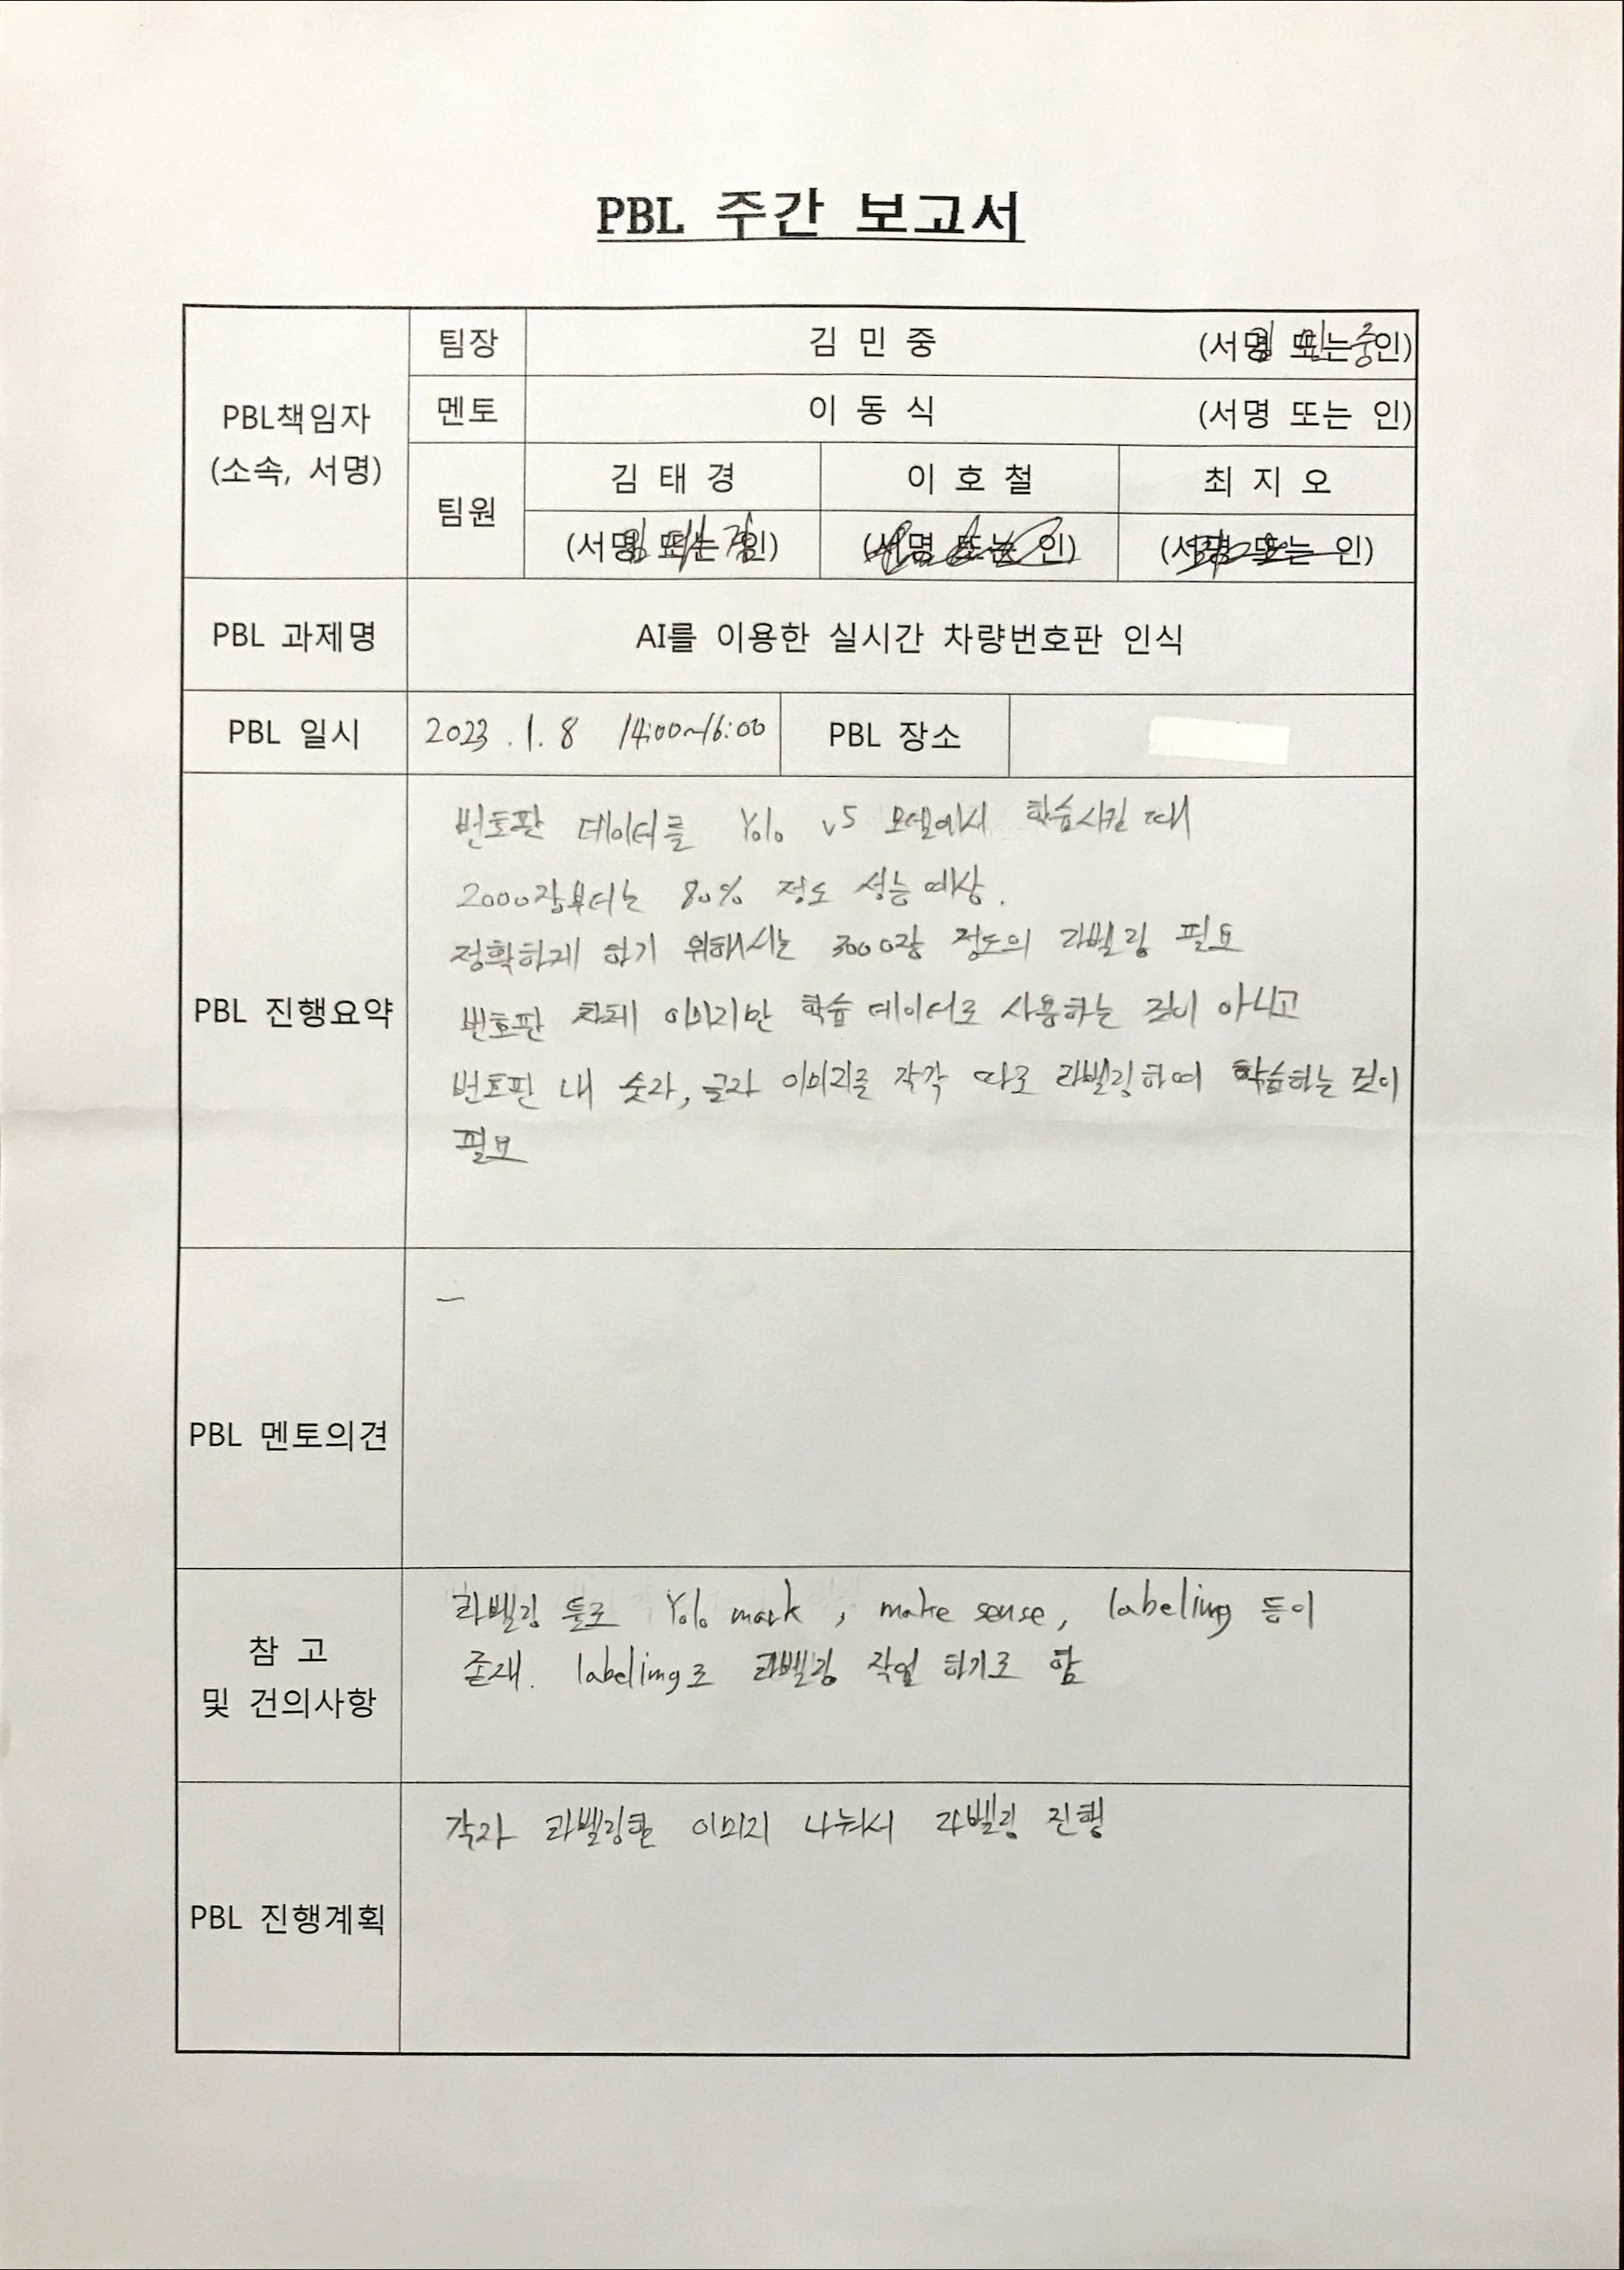 PBL 주간 보고서
PBL책임자
(소속, 서명)
팀장
김 민 중
(서명 또는 인)
김민중
멘토
이 동 식
(서명 또는 인)
팀원
김 태 경
이 호 철
최 지 오
(서명 또는 인)
김태경
(서명 또는 인)
(서명 또는 인)
PBL 과제명
AI를 이용한 실시간 차량번호판 인식
PBL 일시
2023.1.8 14:00~16:00
PBL 장소
PBL 진행요약
번호판 데이터를 Yolo v5 모델에서 학습시킬 때
2000장부터는 80% 정도 성능 예상.
정확하게 하기 위해서는 3000장 정도의 라벨링 필요
번호판 자체 이미지만 학습 데이터로 사용하는 것이 아니고
번호판 내 숫자, 글자 이미지를 각각 따로 라벨링하여 학습하는 것이
필요
PBL 멘토의견
–
참 고
및 건의사항
라벨링 툴로 Yolo mark, make sense, labeling 등이
존재. labelimg로 라벨링 작업 하기로 함
PBL 진행계획
각자 라벨링할 이미지 나눠서 라벨링 진행